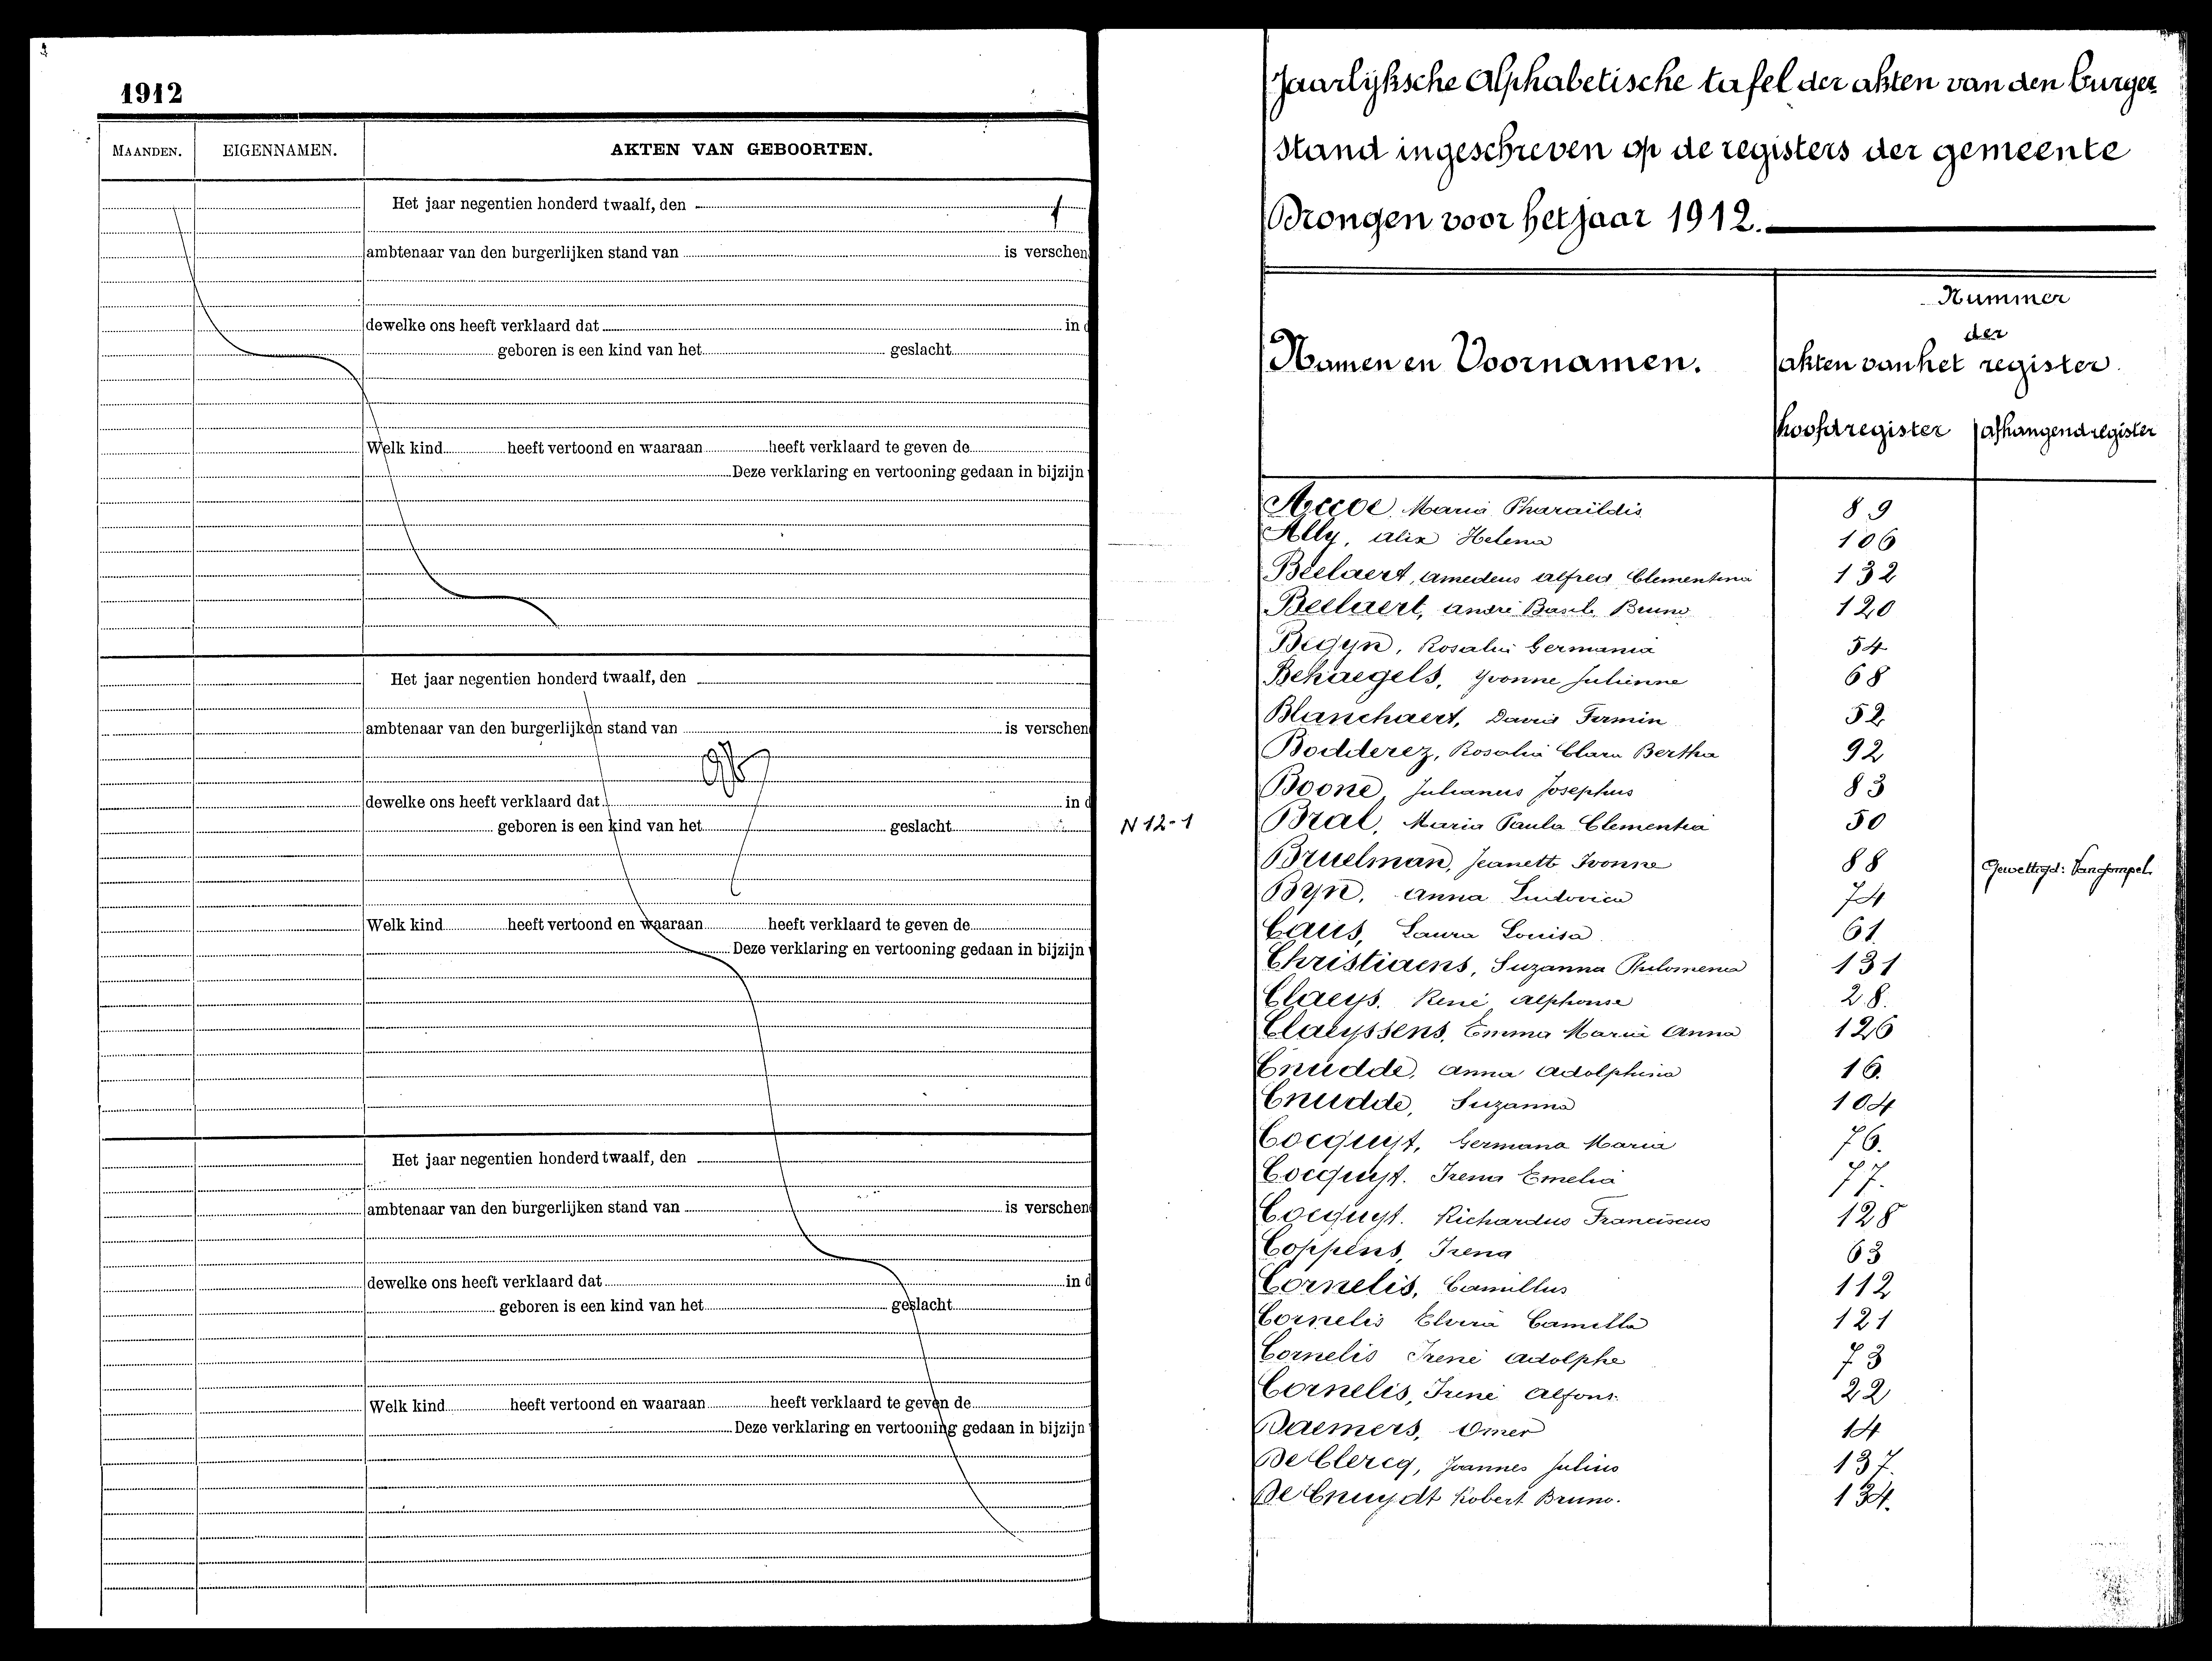 1912
MAANDEN. EIGENNAMEN. AKTEN VAN GEBOORTEN.
Het jaar negentien honderd twaalf, den
ambtenaar van den burgerlijken stand van is verschen
dewelke ons heeft verklaard dat in d
geboren is een kind van het geslacht
Welk kind heeft vertoond en waaraan heeft verklaard te geven de
Deze verklaring en vertooning gedaan in bijzijn
Het jaar negentien honderd twaalf, den
ambtenaar van den burgerlijken stand van is verschen
dewelke ons heeft verklaard dat in d
geboren is een kind van het geslacht
Welk kind heeft vertoond en waaraan heeft verklaard te geven de
Deze verklaring en vertooning gedaan in bijzijn
Het jaar negentien honderd twaalf, den
ambtenaar van den burgerlijken stand van is verschen
dewelke ons heeft verklaard dat in d
geboren is een kind van het geslacht
Welk kind heeft vertoond en waaraan heeft verklaard te geven de
Deze verklaring en vertooning gedaan in bijzijn
N 12-1
Jaarlijksche Alphabetische tafel der akten van den burger
stand ingeschreven op de registers der gemeente
Drongen voor het jaar 1912.
Namen en Voornamen. Nummer
der
akten van het register
hoofdregister afhangend register
Accoe, Maria Pharaïldis 89
Ally, Alix Helena 106
Beelaert, Amedeus Alfred Clementina 132
Beelaert, André Basile Bruno 120
Begyn, Rosalia Germania 54
Behaegels, Yvonne Julienne 68
Blanchaert, David Firmin 52
Bodderez, Rosalia Clara Bertha 92
Boone, Julianus Josephus 83
Bral, Maria Paula Clementia 50
Bruelman, Jeanett Ivonne 88 Gewettigd: Vangompel.
Byn, Anna Ludovica 74
Caus, Laura Louisa 61
Christiaens, Suzanna Philomena 131
Claeys, René Alphonse 28.
Claeyssens, Emma Maria Anna 126
Cnudde, Anna Adolphina 16.
Cnudde, Suzanna 104
Cocquyt, Germana Maria 76.
Cocquyt. Irena Emelia 77.
Cocquyt. Richardus Franciscus 128
Coppens, Irena 63
Cornelis, Camillus 112
Cornelis Elvira Camilla 121
Cornelis Irené Adolphe 73
Cornelis, Irené Alfons. 22
Daemers, Omer 14
De Clercq, Joannes Julius 137.
De Cnuydt Robert Bruno. 134.